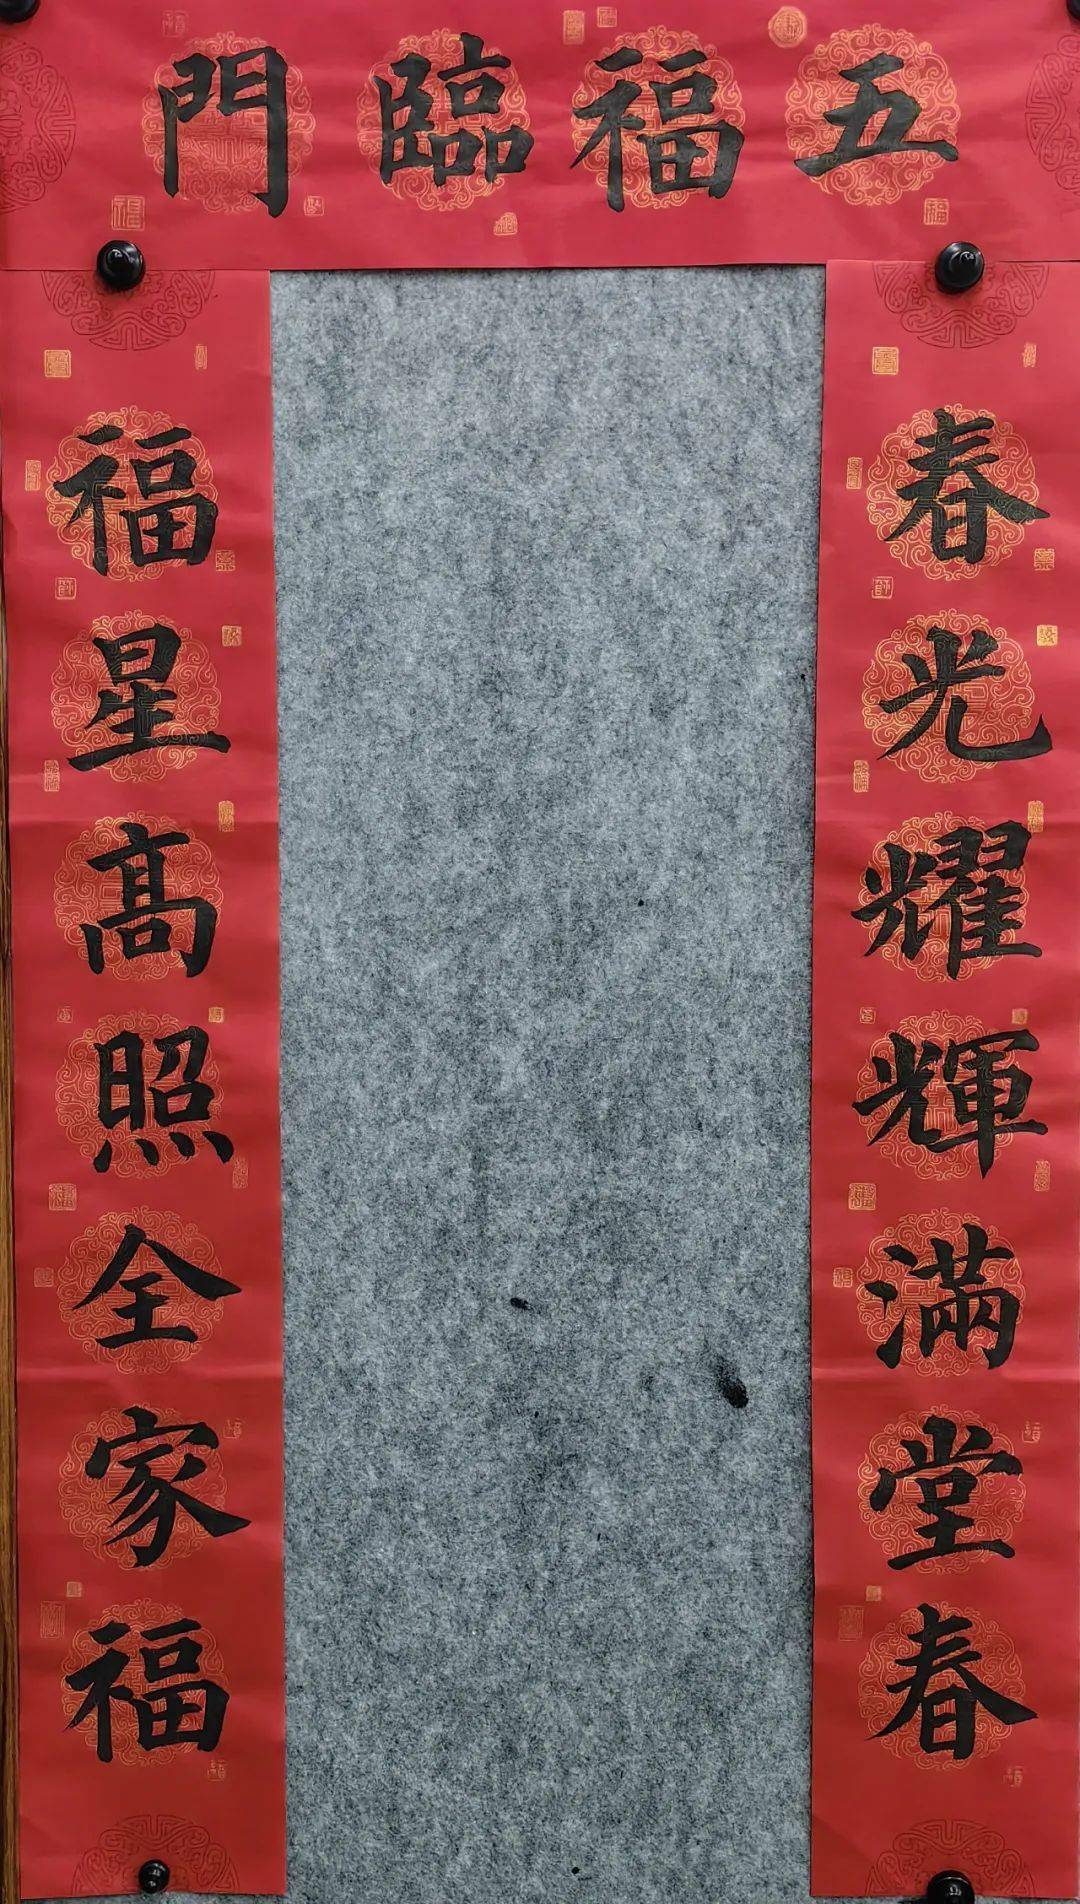 五福臨門
春光耀輝滿堂春
福星高照全家福